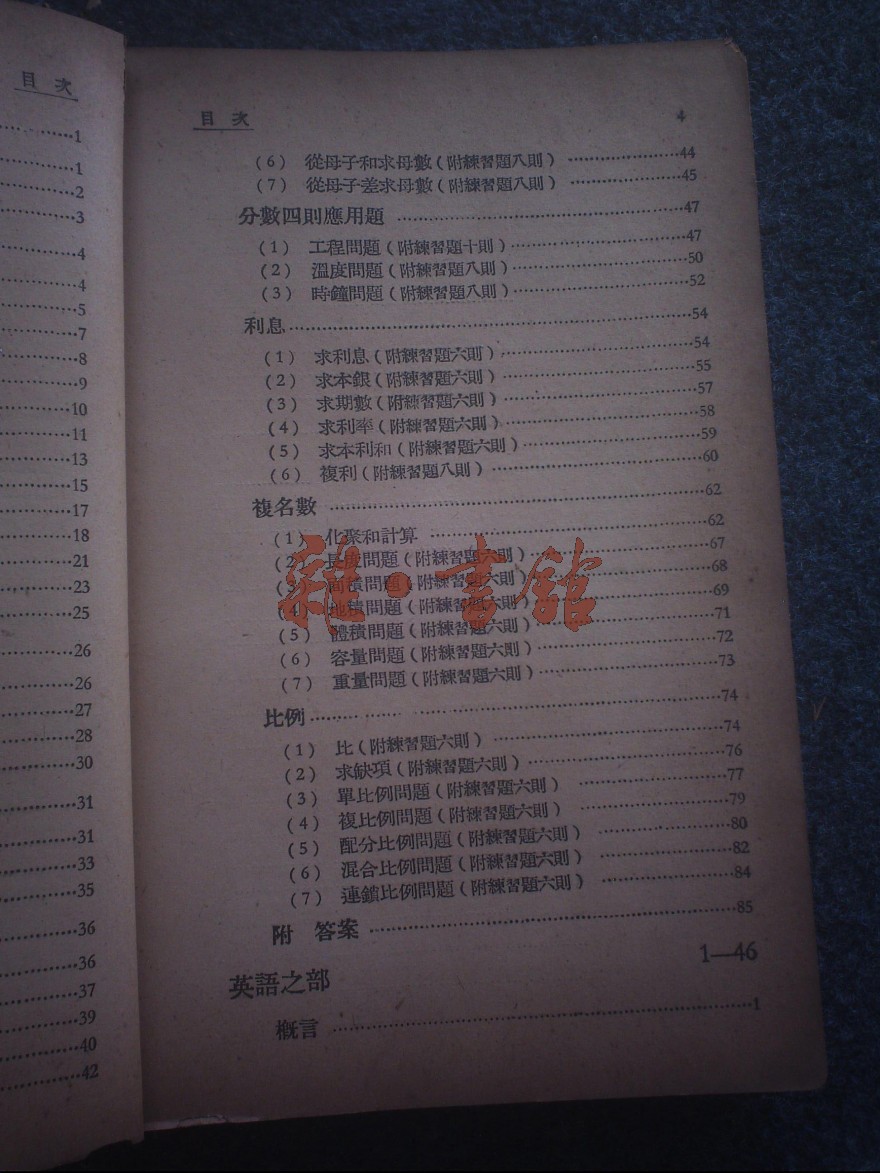 目 次
1
1
2
3
4
4
5
7
8
9
10
11
13
15
17
18
21
23
25
26
26
27
28
30
31
31
33
35
36
36
37
39
40
42
目 次 4
(6) 從母子和求母數(附練習題八則) 44
(7) 從母子差求母數(附練習題八則) 45
分數四則應用題 47
(1) 工程問題(附練習題十則) 47
(2) 溫度問題(附練習題八則) 50
(3) 時鐘問題(附練習題八則) 52
利息 54
(1) 求利息(附練習題六則) 54
(2) 求本銀(附練習題六則) 55
(3) 求期數(附練習題六則) 57
(4) 求利率(附練習題六則) 58
(5) 求本利和(附練習題六則) 59
(6) 複利(附練習題八則) 60
複名數 62
(1) 化聚和計算 62
(2) 長度問題(附練習題六則) 67
(3) 面積問題(附練習題六則) 68
(4) 地積問題(附練習題六則) 69
(5) 體積問題(附練習題六則) 71
(6) 容量問題(附練習題六則) 72
(7) 重量問題(附練習題六則) 73
比例 74
(1) 比(附練習題六則) 74
(2) 求缺項(附練習題六則) 76
(3) 單比例問題(附練習題六則) 77
(4) 複比例問題(附練習題六則) 79
(5) 配分比例問題(附練習題六則) 80
(6) 混合比例問題(附練習題六則) 82
(7) 連鎖比例問題(附練習題六則) 84
附 答案 85
英語之部 1—46
概言 1
書館